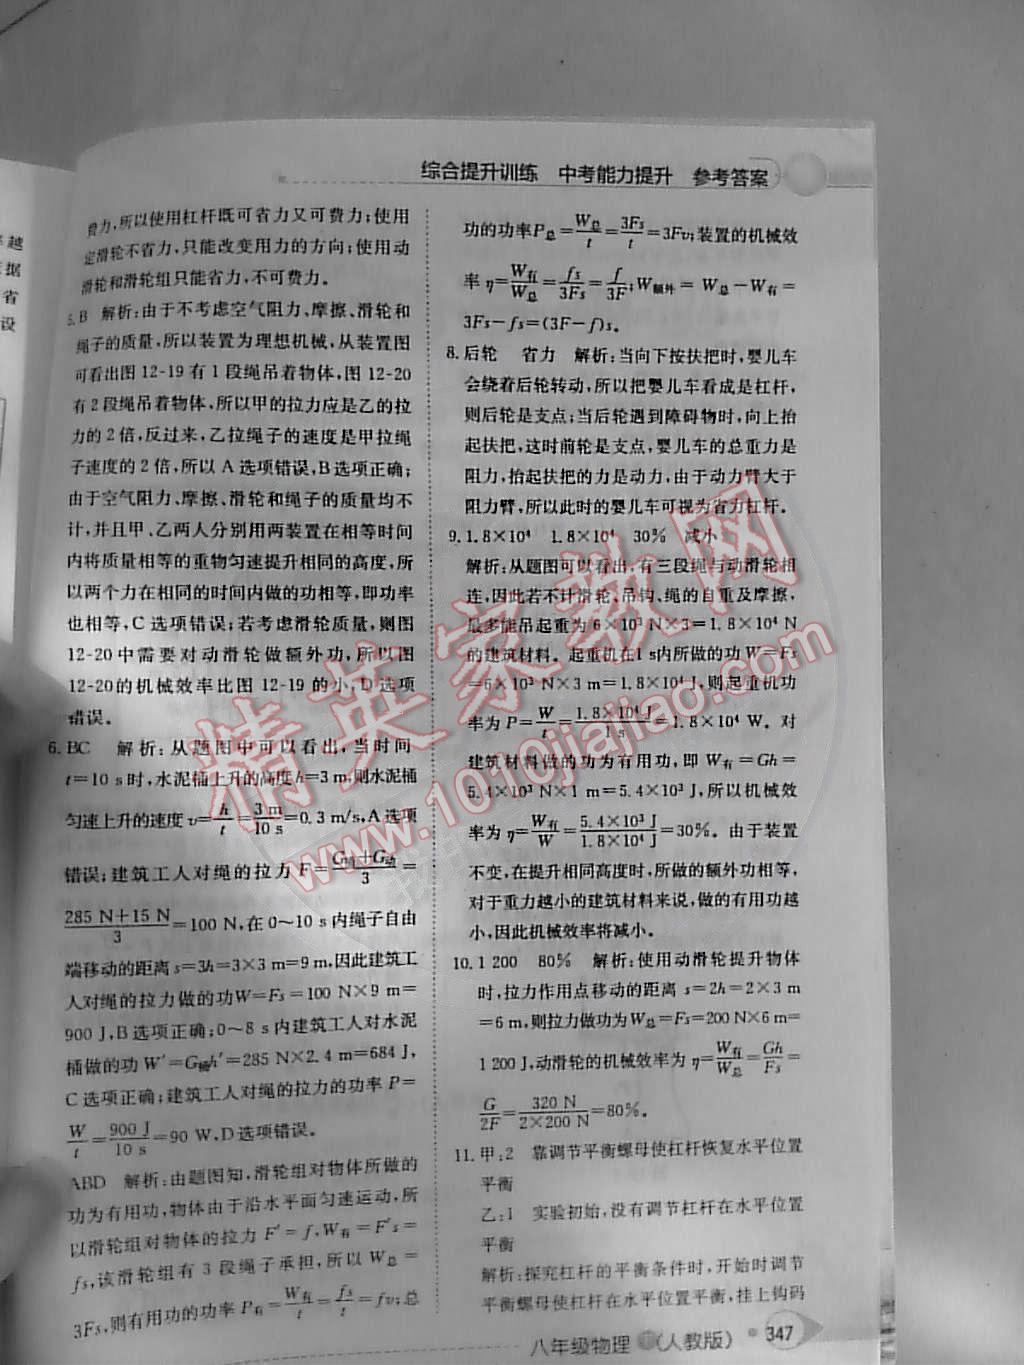 综合提升训练 中考能力提升 参考答案
越
据
省
设
费力,所以使用杠杆既可省力又可费力;使用
定滑轮不省力,只能改变用力的方向;使用动
滑轮和滑轮组只能省力,不可费力。
5.B 解析:由于不考虑空气阻力、摩擦、滑轮和
绳子的质量,所以装置为理想机械,从装置图
可看出图12-19有1段绳吊着物体,图12-20
有2段绳吊着物体,所以甲的拉力应是乙的拉
力的2倍,反过来,乙拉绳子的速度是甲拉绳
子速度的2倍,所以A选项错误,B选项正确;
由于空气阻力、摩擦、滑轮和绳子的质量均不
计,并且甲、乙两人分别用两装置在相等时间
内将质量相等的重物匀速提升相同的高度,所
以两个力在相同的时间内做的功相等,即功率
也相等,C选项错误;若考虑滑轮质量,则图
12-20中需要对动滑轮做额外功,所以图
12-20的机械效率比图12-19的小,D选项
错误。
6.BC 解析:从题图中可以看出,当时间
t=10 s时,水泥桶上升的高度h=3 m,则水泥桶
匀速上升的速度v=h/t=3 m/10 s=0.3 m/s,A选项
错误;建筑工人对绳的拉力F=(G桶+G动)/3=
(285 N+15 N)/3=100 N,在0~10 s内绳子自由
端移动的距离s=3h=3×3 m=9 m,因此建筑工
人对绳的拉力做的功W=Fs=100 N×9 m=
900 J,B选项正确;0~8 s内建筑工人对水泥
桶做的功W′=G桶h′=285 N×2.4 m=684 J,
C选项正确;建筑工人对绳的拉力的功率P=
W/t=900 J/10 s=90 W,D选项错误。
ABD 解析:由题图知,滑轮组对物体所做的
功为有用功,物体由于沿水平面匀速运动,所
以滑轮组对物体的拉力F′=f,W有=F′s=
fs,该滑轮组有3段绳子承担,所以W总=
3Fs,则有用功的功率P有=W有/t=fs/t=fv;总
功的功率P总=W总/t=3Fs/t=3Fv;装置的机械效
率η=W有/W总=fs/3Fs=f/3F;W额外=W总-W有=
3Fs-fs=(3F-f)s。
8.后轮 省力 解析:当向下按扶把时,婴儿车
会绕着后轮转动,所以把婴儿车看成是杠杆,
则后轮是支点;当后轮遇到障碍物时,向上抬
起扶把,这时前轮是支点,婴儿车的总重力是
阻力,抬起扶把的力是动力,由于动力臂大于
阻力臂,所以此时的婴儿车可视为省力杠杆。
9.1.8×10⁴ 1.8×10⁴ 30% 减小
解析:从题图可以看出,有三段绳与动滑轮相
连,因此若不计滑轮、吊钩、绳的自重及摩擦,
最多能吊起重为6×10³ N×3=1.8×10⁴ N
的建筑材料。起重机在1 s内所做的功W=Fs
=6×10³ N×3 m=1.8×10⁴ J,则起重机功
率为P=W/t=1.8×10⁴ J/1 s=1.8×10⁴ W。对
建筑材料做的功为有用功,即W有=Gh=
5.4×10³ N×1 m=5.4×10³ J,所以机械效
率为η=W有/W=5.4×10³ J/1.8×10⁴ J=30%。由于装置
不变,在提升相同高度时,所做的额外功相等,
对于重力越小的建筑材料来说,做的有用功越
小,因此机械效率将减小。
10.1 200 80% 解析:使用动滑轮提升物体
时,拉力作用点移动的距离s=2h=2×3 m
=6 m,则拉力做功为W总=Fs=200 N×6 m=
1 200 J,动滑轮的机械效率为η=W有/W总=Gh/Fs=
G/2F=320 N/(2×200 N)=80%。
11.甲:2 靠调节平衡螺母使杠杆恢复水平位置
平衡
乙:1 实验初始,没有调节杠杆在水平位置
平衡
解析:探究杠杆的平衡条件时,开始时调节
平衡螺母使杠杆在水平位置平衡,挂上钩码
八年级物理 下(人教版) 347
精英家教网
www.1010jiajiao.com